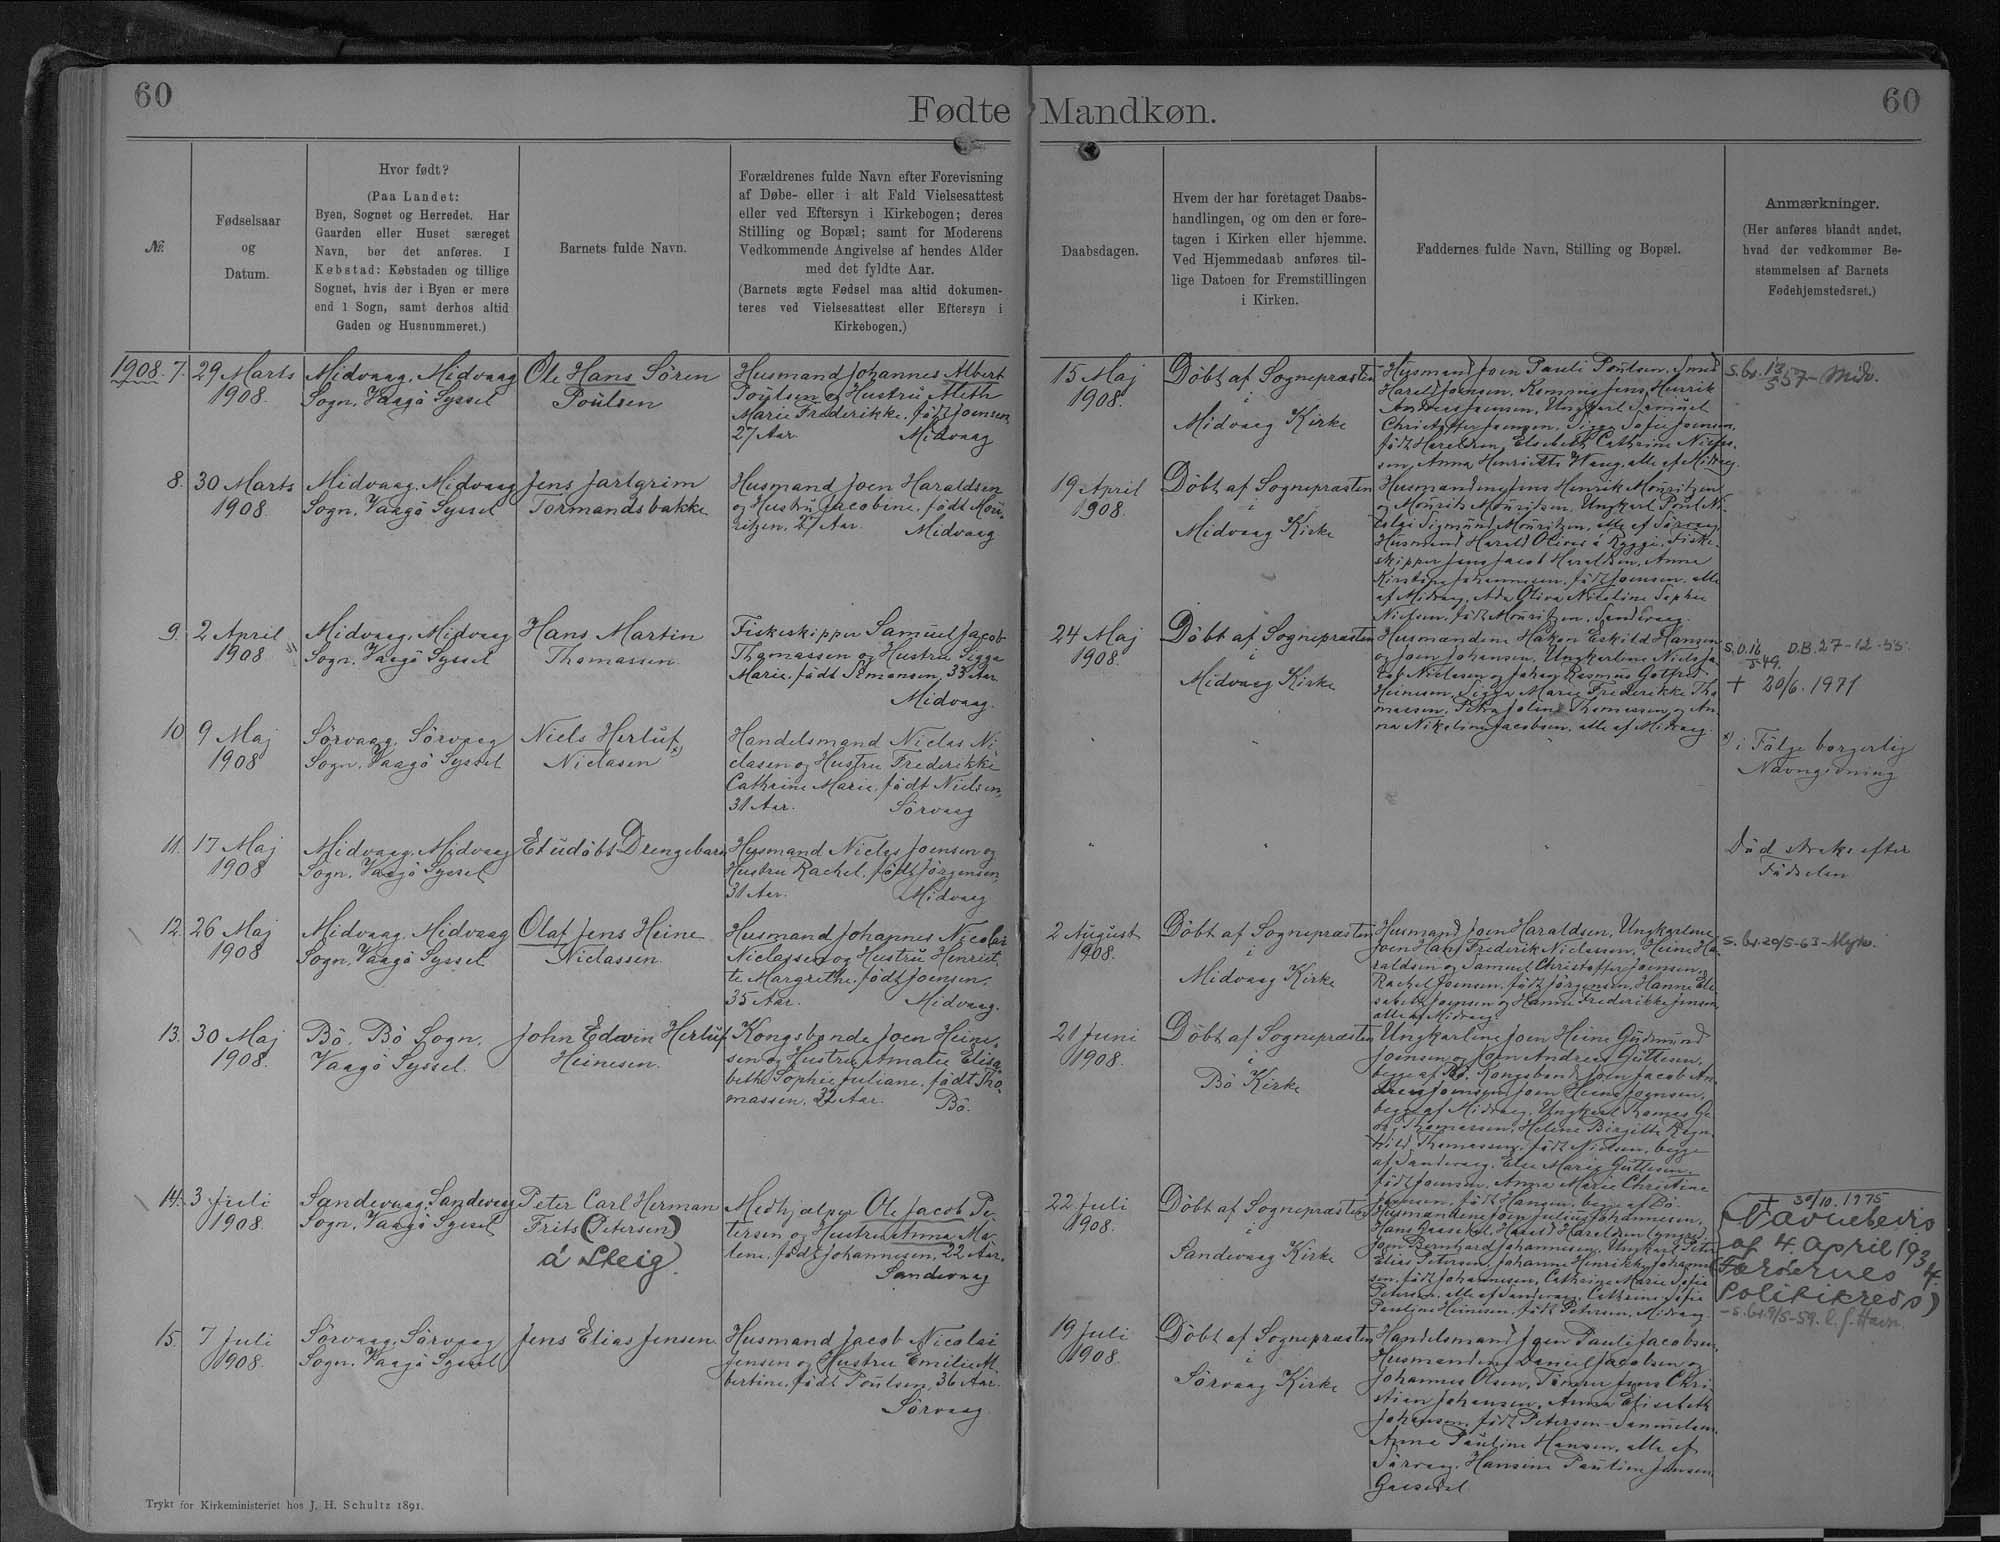 60
Fødte
Mandkøn.
60
№.
Fødselsaar
og
Datum.
Hvor født?
(Paa Landet:
Byen, Sognet og Herredet. Har
Gaarden eller Huset særeget
Navn, bør det anføres. I
Købstad: Købstaden og tillige
Sognet, hvis der i Byen er mere
end 1 Sogn, samt derhos altid
Gaden og Husnummeret.)
Barnets fulde Navn.
Forældrenes fulde Navn efter Forevisning
af Døbe- eller i alt Fald Vielsesattest
eller ved Eftersyn i Kirkebogen; deres
Stilling og Bopæl; samt for Moderens
Vedkommende Angivelse af hendes Alder
med det fyldte Aar.
(Barnets ægte Fødsel maa altid dokumen-
teres ved Vielsesattest eller Eftersyn i
Kirkebogen.)
Daabsdagen.
Hvem der har foretaget Daabs-
handlingen, og om den er fore-
tagen i Kirken eller hjemme.
Ved Hjemmedaab anføres til-
lige Datoen for Fremstillingen
i Kirken.
Faddernes fulde Navn, Stilling og Bopæl.
Anmærkninger.
(Her anføres blandt andet,
hvad der vedkommer Be-
stemmelsen af Barnets
Fødehjemstedsret.)
1908. 7.
29 Marts
1908.
Midvaag, Midvaag
Sogn, Vaagö Syssel
Ole Hans Sören
Poulsen
Husmand Johannes Albert
Poülsen og Hustru Meth
Marie Frederikke, födt Joensen,
27 Aar. Midvaag
15 Maj
1908.
Döbt af Sognepræsten
i
Midvaag Kirke
Husmand Joen Pauli Poulsen, Smed
Harald Joensen, Kommis Jens Henrik
Andreas Joensen, Ungkarl Samuel
Christoffer Joensen, Sigga Sofie Joensen,
födt Haraldsen, Elsebeth Cathrine Niclas-
sen, Anna Henriette Waag, alle af Midvaag.
8.
30 Marts
1908.
Midvaag, Midvaag
Sogn, Vaagö Syssel
Jens Jarlgrim
Tormandsbakke
Husmand Joen Haraldsen
og Hustru Jacobine, födt Mou-
ritzen, 27 Aar. Midvaag
19 April
1908.
Döbt af Sognepræsten
i
Midvaag Kirke
Husmændene Jens Henrik Mouritzen
og Mourits Mouritzen, Ungkarl Poul Ni-
colai Sigmund Mouritzen, alle af Sörvaag,
Husmand Harald Oliver á Ryggi, Fiske-
skipper Jens Jacob Haraldsen, Anna
Kirstine Johannesen, födt Joensen, alle
af Midvaag, Ada Oliva Nicoline Sophie
Nielsen, födt Mouritzen, Sandevaag.
9.
2 April
1908
Midvaag, Midvaag
Sogn, Vaagö Syssel
Hans Martin
Thomassen
Fiskeskipper Samuel Jacob
Thomassen og Hustru Sigga
Marie, födt Simonsen, 33 Aar
Midvaag.
24 Maj
1908.
Döbt af Sognepræsten
i
Midvaag Kirke
Husmændene Hakon Eskild Hansen
og Joen Johansen, Ungkarlene Niels Ja-
cob Niclasen og Johan Rasmus Gotfred
Heinesen, Sigga Marie Frederikke Tho-
massen, Petra Joline Thomassen og An-
na Nikoline Jacobsen, alle af Midvaag.
D.B. 27-12-55.
+ 20/6. 1971
10
9 Maj
1908
Sörvaag, Sörvaag
Sogn, Vaagö Syssel
Niels Herluf
Niclasen x)
Handelsmand Niclas Ni-
clasen og Hustru Frederikke
Cathrine Marie, födt Nielsen,
31 Aar. Sörvaag
x) i Fölge borgerlig
Navngivning
11.
17 Maj
1908
Midvaag, Midvaag
Sogn, Vaagö Syssel
Et udöbt Drengebarn
Husmand Niclas Joensen og
Hustru Rachel, födt Jörgensen,
31 Aar. Midvaag
Död straks efter
Födselen
12.
26 Maj
1908
Midvaag, Midvaag
Sogn, Vaagö Syssel
Olaf Jens Heine
Niclassen
Husmand Johannes Nicolai
Niclassen og Hustru Henriet-
te Margrethe, födt Joensen,
35 Aar. Midvaag.
2 August
1908.
Döbt af Sognepræsten
i
Midvaag Kirke
Husmand Joen Haraldsen, Ungkarlene
Joen Hans Frederik Niclassen, Heine Ha-
raldsen og Samuel Christoffer Joensen,
Rachel Joensen, födt Jörgensen, Hanne Eli-
sabeth Joensen og Hanne Frederikke Jensen
alle af Midvaag.
13.
30 Maj
1908.
Bö, Bö Sogn,
Vaagö Syssel.
John Edwin Herluf
Heinesen.
Kongsbonde Joen Heine-
sen og Hustru Amalie Elisa-
beth Sophie Juliane, födt Tho-
massen, 22 Aar. Bö.
21 Juni
1908.
Döbt af Sognepræsten
i
Bö Kirke
Ungkarlene Joen Heine Gudmund
Joensen og Joen Andreas Guttesen,
begge af Bö, Kongsbonde Joen Jacob An-
dreas Joensen, Joen Heine Joensen,
begge af Midvaag, Ungkarl Thomas Ge-
org Thomassen, Helene Birgitte Ragn-
hild Thomassen, födt Nielsen, begge
af Sandevaag, Else Marie Guttesen,
födt Joensen, Anna Marie Christine
Joensen, födt Hansen, begge af Bö.
14.
3 Juli
1908.
Sandevaag, Sandevaag
Sogn, Vaagö Syssel
Peter Carl Herman
Frits (Petersen)
á Steig.
Medhjælper Ole Jacob Pe-
tersen og Hustru Anna Ma-
lene, födt Johannesen, 22 Aar.
Sandevaag
22 Juli
1908.
Döbt af Sognepræsten
i
Sandevaag Kirke
Joen Bernhard Johannesen, Ungkarl Peter
Elias Petersen, Johanne Henrikke Johanne-
sen, födt Johannesen, Cathrine Marie Sofie
Petersen, alle af Sandevaag, Cathrine Sofie
Pauline Heinesen, födt Petersen, Midvaag
+ 30/10. 1975
(Navnebevis
af 4. April 1934.
Færøernes
Politikreds)
15.
7 Juli
1908.
Sörvaag, Sörvaag
Sogn, Vaagö Syssel
Jens Elias Jensen
Husmand Jacob Nicolai
Jensen og Hustru Emilie Al-
bertine, födt Poulsen, 36 Aar.
Sörvaag
19 Juli
1908.
Döbt af Sognepræsten
i
Sörvaag Kirke
Handelsmand Joen Pauli Jacobsen,
Husmændene Daniel Jacobsen og
Johannes Olsen, Tömrer Jens Chri-
stian Johansen, Anna Elisabeth
Johansen, födt Petersen-Samuelsen,
Anna Pauline Hansen, alle af
Sörvaag, Hansine Pauline Jensen
Gaasedal
Trykt for Kirkeministeriet hos J. H. Schultz 1891.